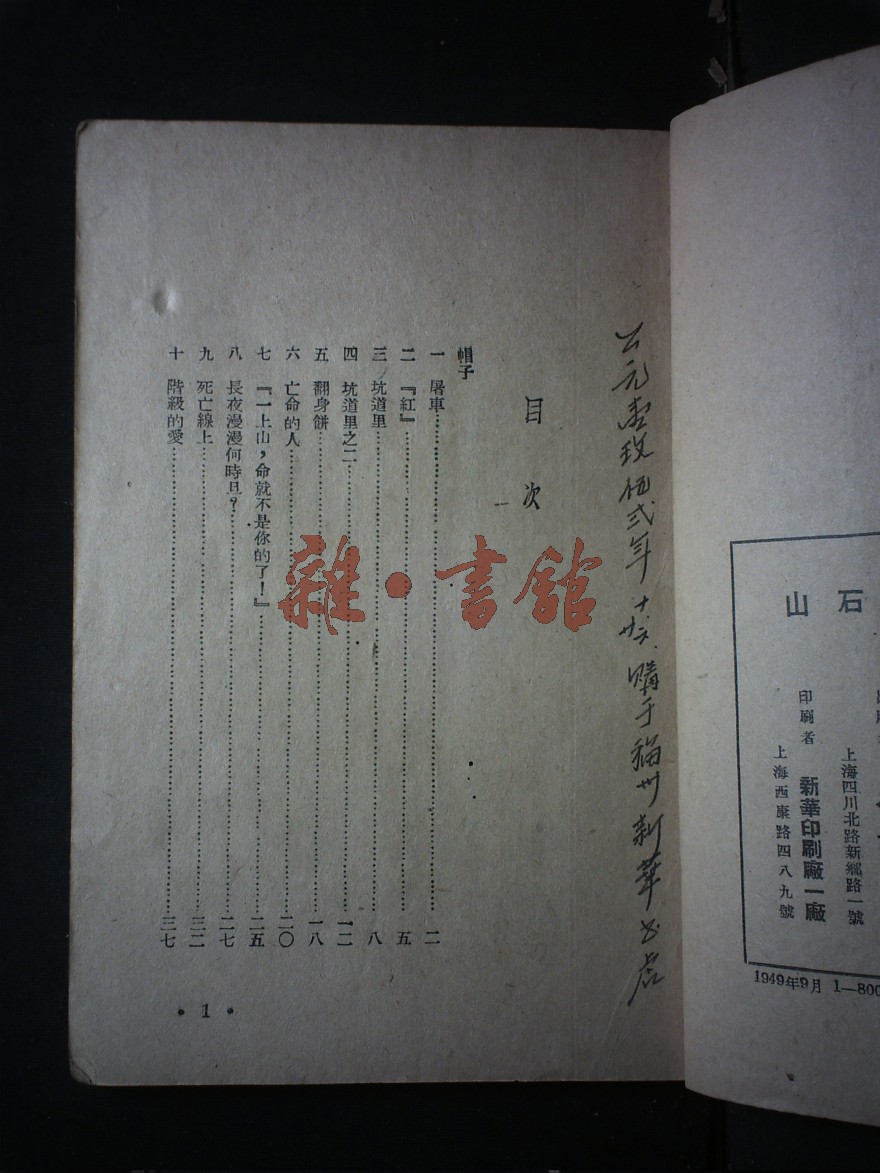 石山
上海四川北路新鄉路一號
印刷者 新華印刷廠一廠
上海西康路四八九號
1949年9月 1—800
公元壹玖伍弍年 十 廿六 購于福州新華书店
目次
帽子
一 屠車 二
二 『紅』 五
三 坑道里 八
四 坑道里之二 一二
五 翻身餅 一八
六 亡命的人 二〇
七 『一上山，命就不是你的了！』 二五
八 長夜漫漫何時旦？ 二七
九 死亡線上 三二
十 階級的愛 三七
• 1 •
雜·書館